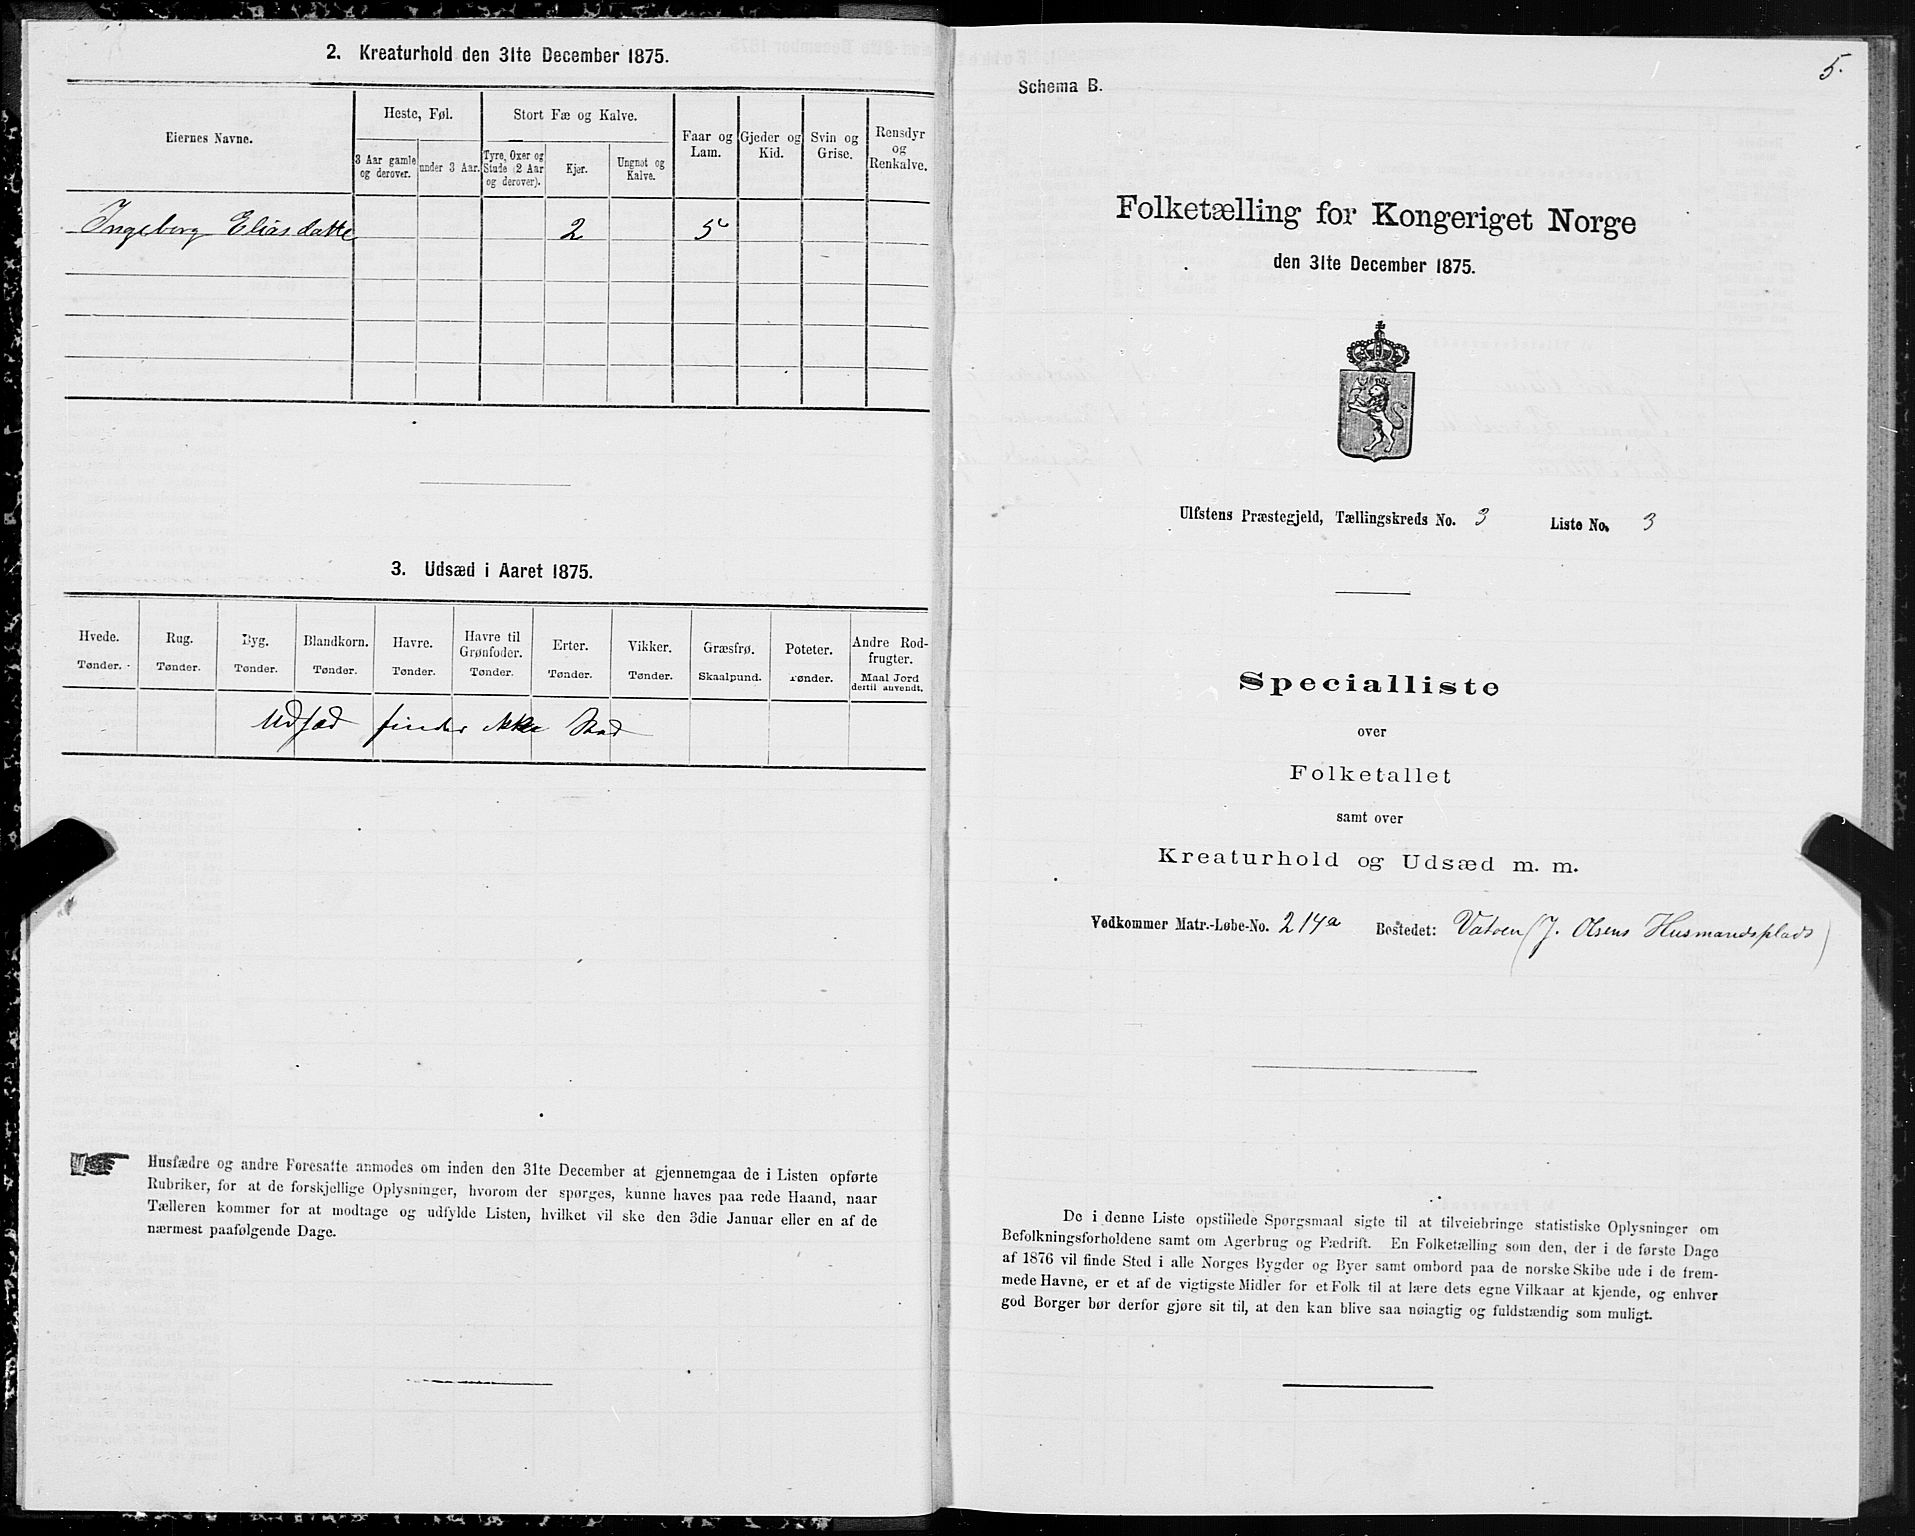 2. Kreaturhold den 31te December 1875.
Eiernes Navne.
Heste, Føl.
Stort Fæ og Kalve.
Faar og Lam.
Gjeder og Kid.
Svin og Grise.
Rensdyr og Renkalve.
3 Aar gamle og derover.
under 3 Aar.
Tyre, Oxer og Stude (2 Aar og derover).
Kjør.
Ungnøt og Kalve.
Ingeborg Eliasdatte 2 5
3. Udsæd i Aaret 1875.
Hvede. Rug. Byg. Blandkorn. Havre. Havre til Grønfoder. Erter. Vikker. Græsfrø. Poteter. Andre Rodfrugter.
Tønder. Tønder. Tønder. Tønder. Tønder. Tønder. Tønder. Tønder. Skaalpund. Tønder. Maal Jord dertil anvendt.
Udsæd finder ikke Sted
Husfædre og andre Foresatte anmodes om inden den 31te December at gjennemgaa de i Listen opførte
Rubriker, for at de forskjellige Oplysninger, hvorom der spørges, kunne haves paa rede Haand, naar
Tælleren kommer for at modtage og udfylde Listen, hvilket vil ske den 3die Januar eller en af de
nærmest paafølgende Dage.
5.
Schema B.
Folketælling for Kongeriget Norge
den 31te December 1875.
Ulfstens Præstegjeld, Tællingskreds No. 3 Liste No. 3
Specialliste
over
Folketallet
samt over
Kreaturhold og Udsæd m. m.
Vedkommer Matr.-Løbe-No. 214a Bostedet: Vatoen (J. Olsens Husmandsplads)
De i denne Liste opstillede Spørgsmaal sigte til at tilveiebringe statistiske Oplysninger om
Befolkningsforholdene samt om Agerbrug og Fædrift. En Folketælling som den, der i de første Dage
af 1876 vil finde Sted i alle Norges Bygder og Byer samt ombord paa de norske Skibe ude i de frem-
mede Havne, er et af de vigtigste Midler for et Folk til at lære dets egne Vilkaar at kjende, og enhver
god Borger bør derfor gjøre sit til, at den kan blive saa nøiagtig og fuldstændig som muligt.